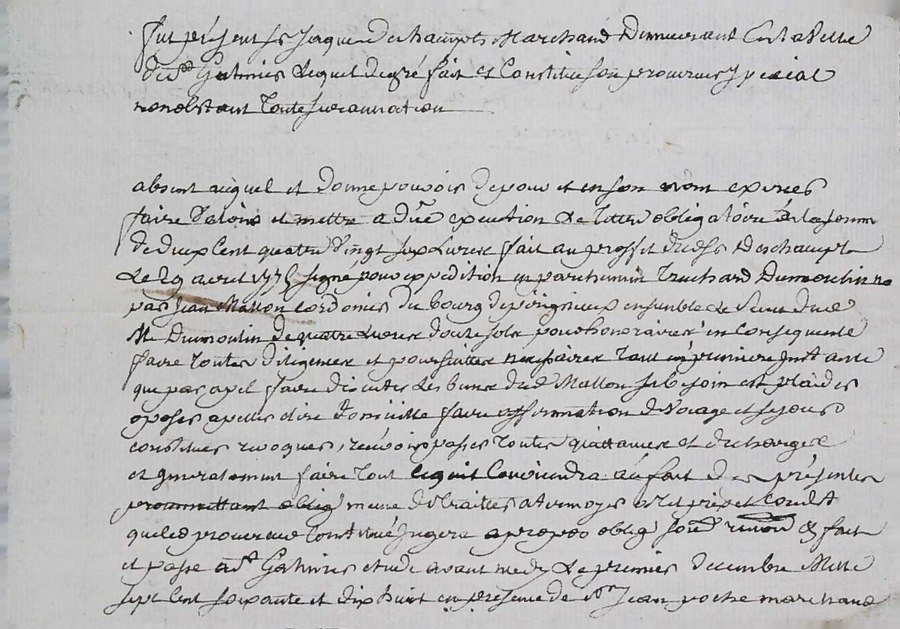 fut présent sr Jaque Dechamps Marchand Demeurant en la ville
de st Galmier lequel degré fait et Constitue son procureur special
nonobstant toute surannation
absent auquel et donne pouvoir de pour et en son nom exiger
faire saisir et mettre a dûe execution la lettre obligatoire de la somme
de deux cent quatre vingt six livres fait au proffit dud sr Deschamps
le 29 avril 1775 signé pour expedition en parchemin Truchard Dumoulin no
par Jean Mallon cordonier du bourg de perigneux ensemble le seau dud
Mr Dumoulin de quatre livres douze sols pour honoraires en consequence
faire toutes diligences et poursuittes necessaires tant en premiere instance
que par apel faire discuter les biens dud Mallon si besoin est plaider
oposer apeller elire domicille faire affirmation de voyage et sejour
constituer revoquer, recevoir passer toutes quittances et decharges
et generalement faire tout ce qui conviendra au fait des présentes
promettant oblig meme de traitter atermoyer et
que led procureur constitué jugera a propos oblig soum renon &c fait
et passé a st Galmier etude avant midy le premier decembre Mille
sept cent soixante et dix huit en présence de sr Jean poche marchand